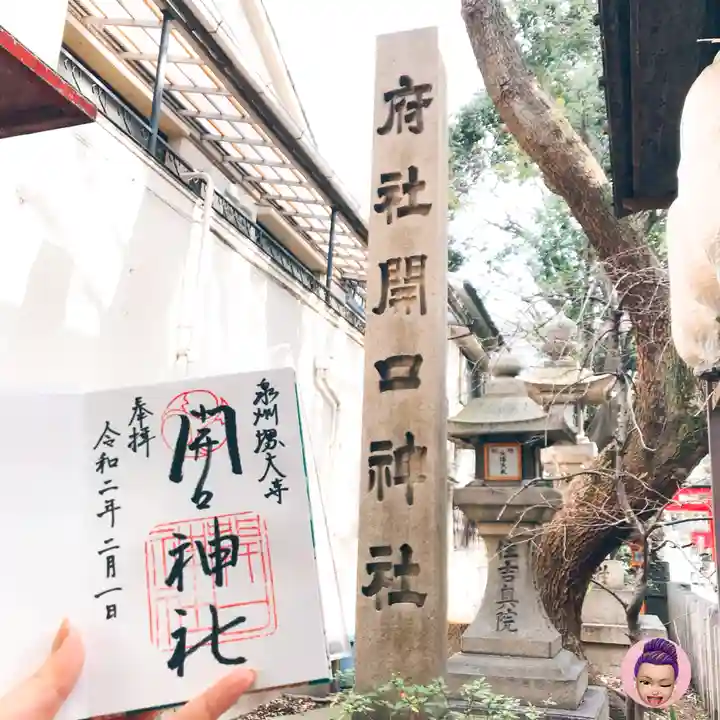 府社開口神社
泉州堺大寺
開口神社
奉拝
令和二年二月一日
住吉真院